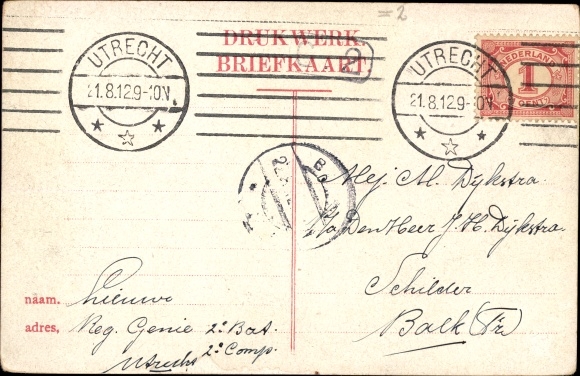 =2
DRUKWERK
BRIEFKAART
UTRECHT
21.8.12.9-10N
UTRECHT
21.8.12.9-10N
NEDERLAND
1
CENT
Mej. M. Dijkstra.
p/a Den Heer J. H. Dijkstra.
Schilder
Balk (Fr)
naam. Lieuwe
adres, Reg. Genie 2e Bat.
2e Comp.
Utrecht